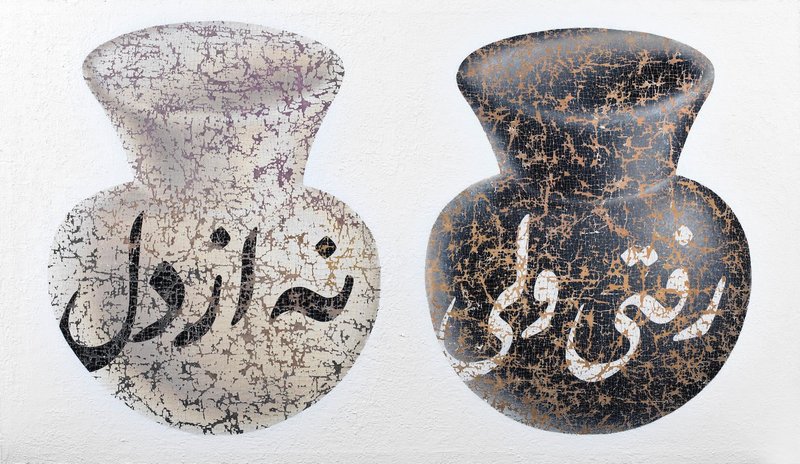 رفتی ولی
نه از دل